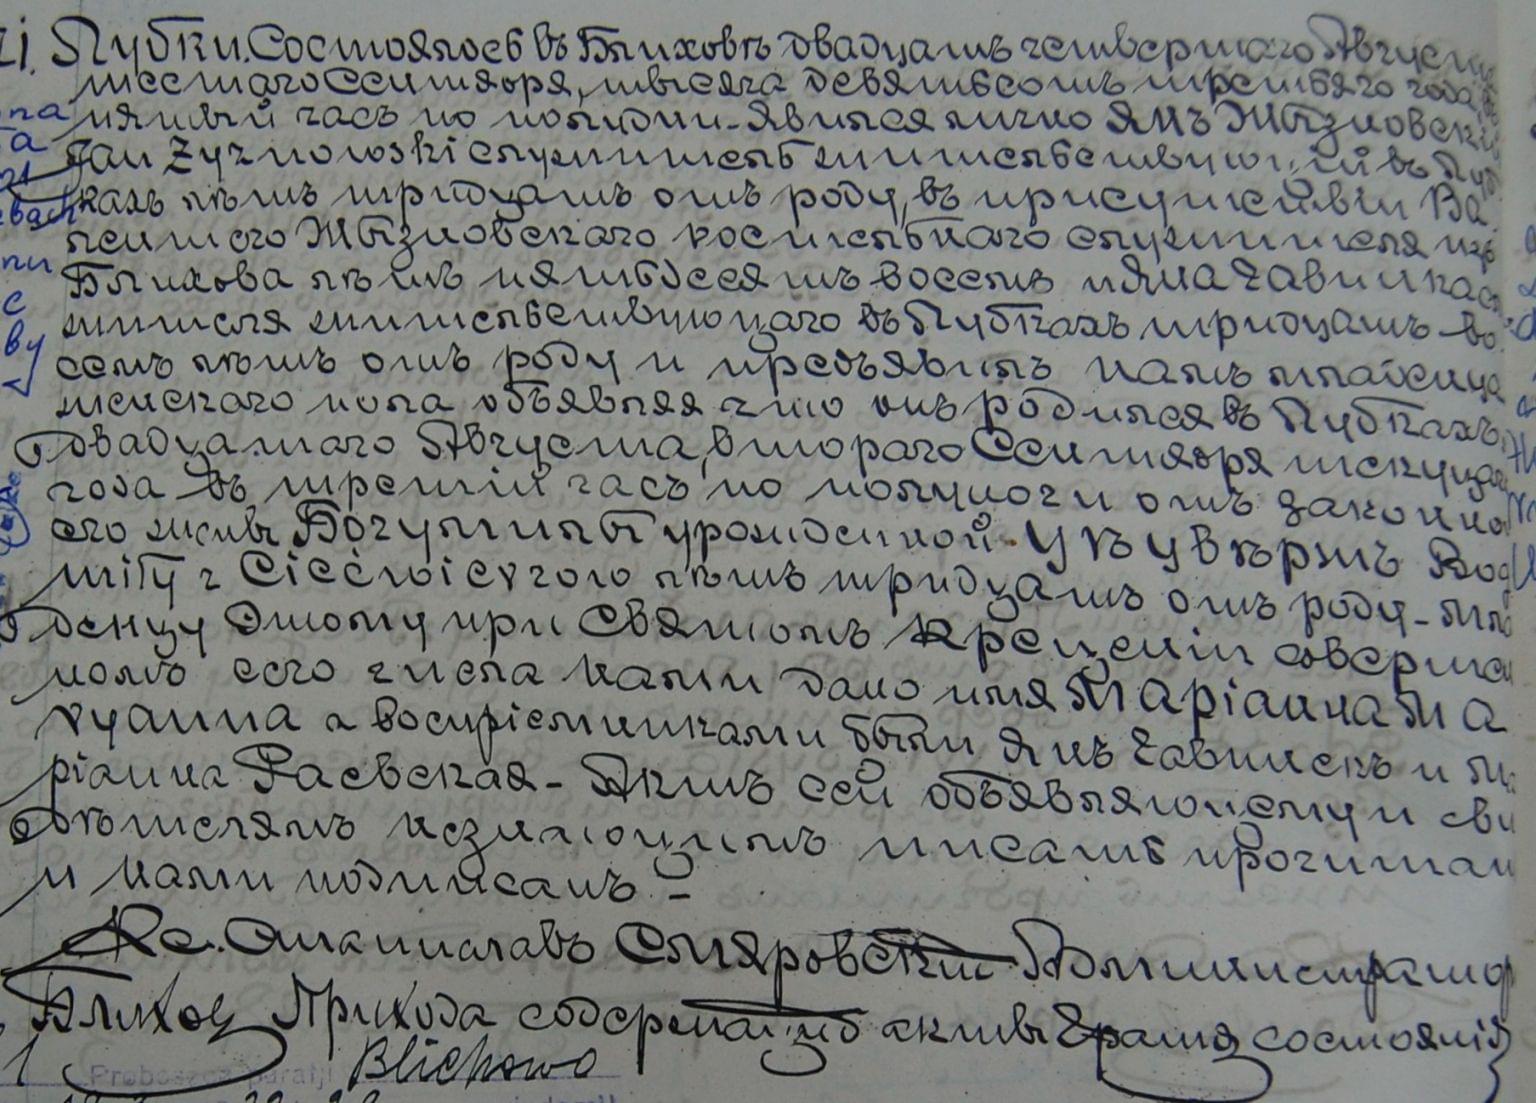 Лубки. Состоялось въ Блиховѣ двадцать четвертаго Августа
шестаго Сентября, тысяча девятьсотъ третьяго года
пятый часъ по полудни - явился лично Янъ Жызновскій
Jan Żyznowski служитель жительствующій въ Луб
кахъ лѣтъ тридцать отъ роду, въ присутствіи Ва
лентего Жызновскаго костельнаго служителя изъ
Блихова лѣтъ пятьдесятъ восемь и Яна
жителя жительствующаго въ Лубкахъ тридцать во
семь лѣтъ отъ роду и предъявилъ намъ младенца
женскаго пола объявляя что онъ родился въ Лубкахъ,
двадцатаго Августа, втораго Сентября текущаго
года въ третій часъ по полуночи отъ законной
его жены Богумилы урожденной
лѣтъ тридцать отъ роду - Мла
денцу этому при Святомъ Крещеніи совершен
номъ сего числа нами дано имя Маріанна
а воспріемниками были Янъ и Ма
ріанна Раевская - Актъ сей объявляющему и сви
дѣтелямъ незнающимъ писать прочитанъ
и нами подписанъ -
Кс. Станиславъ Смяровскій Администраторъ
Блихов Прихода содержащій акты Гражд состоянія
Blichowo
Proboszcz parafji